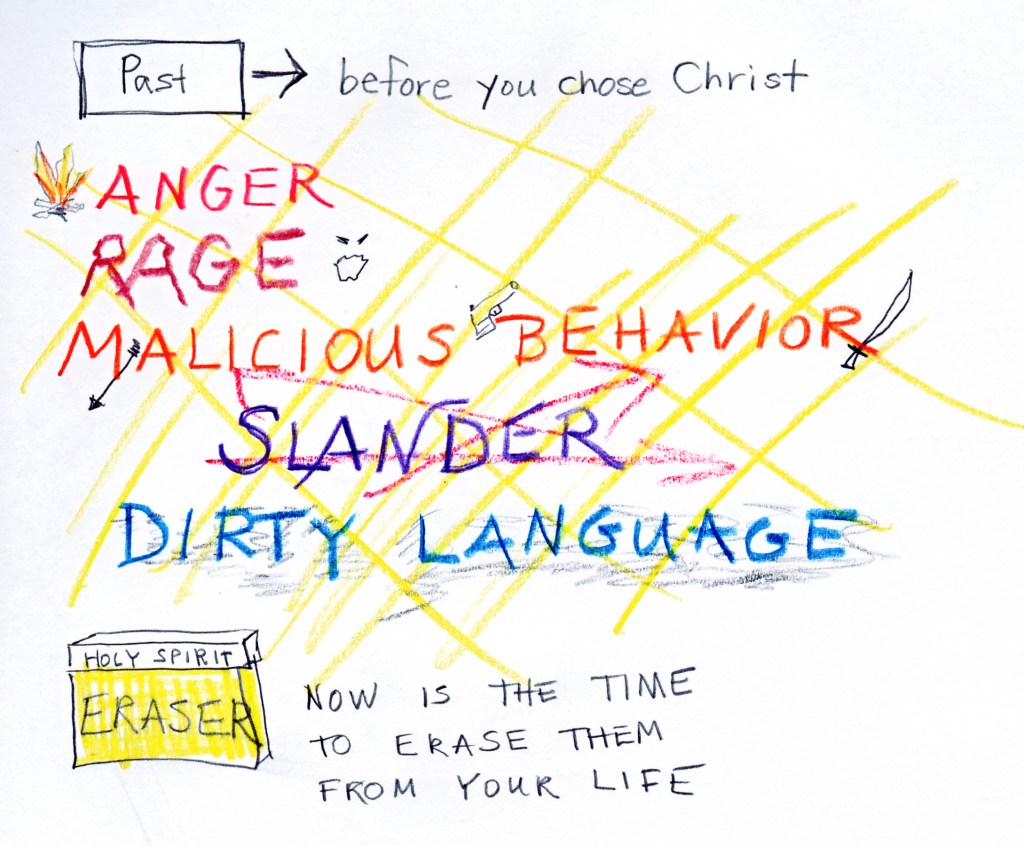 Past → before you chose Christ
ANGER
RAGE
MALICIOUS BEHAVIOR
SLANDER
DIRTY LANGUAGE
HOLY SPIRIT
ERASER
NOW IS THE TIME
TO ERASE THEM
FROM YOUR LIFE